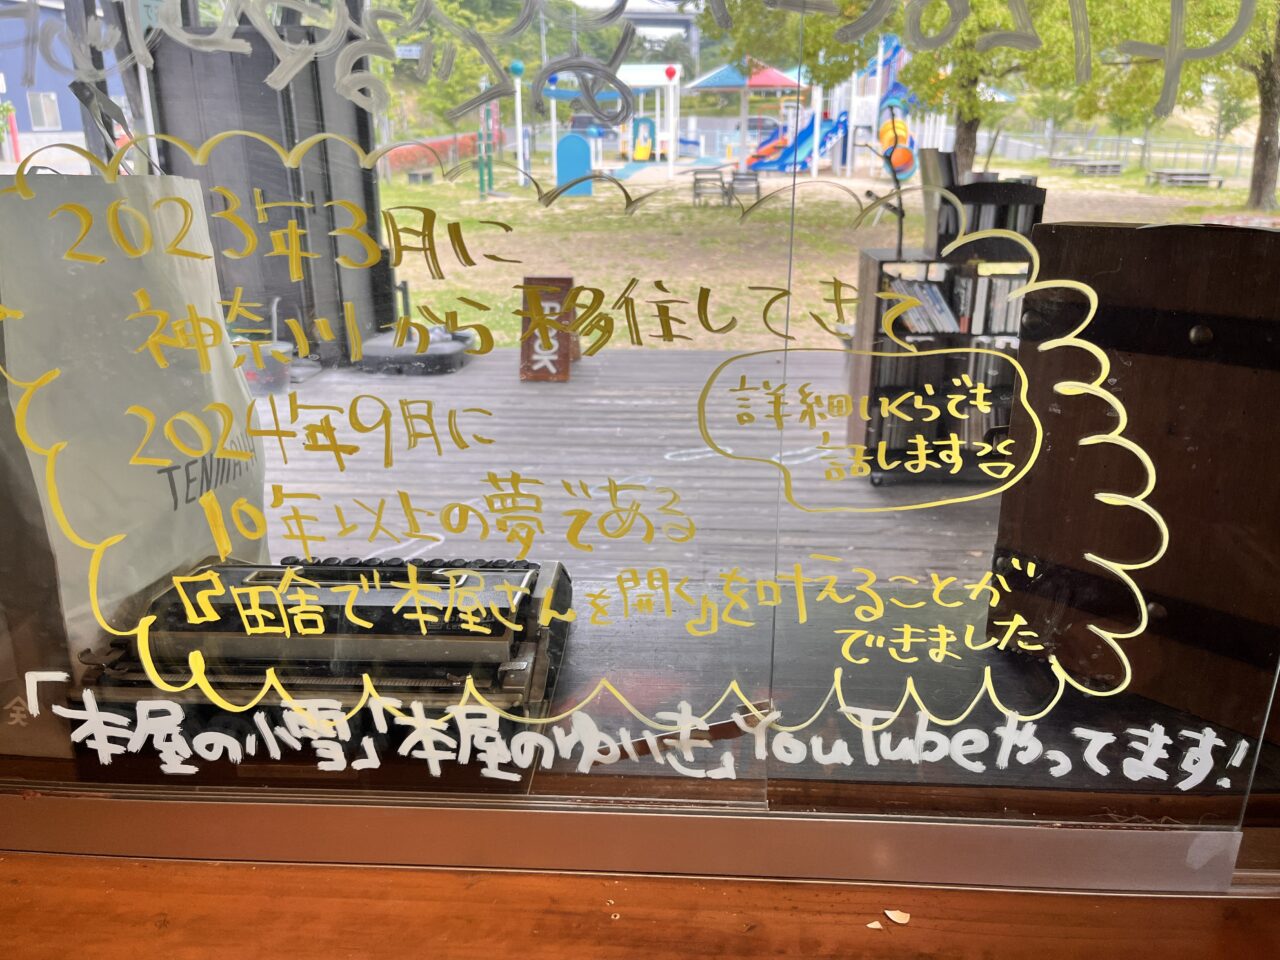 2023年3月に
神奈川から移住してきて
2024年9月に
詳細いくらでも
話します
TENMAYA
10年以上の夢である
『田舎で本屋さんを開く』を叶えることが
できました
「本屋の小雪」「本屋のゆいき」YouTubeやってます!